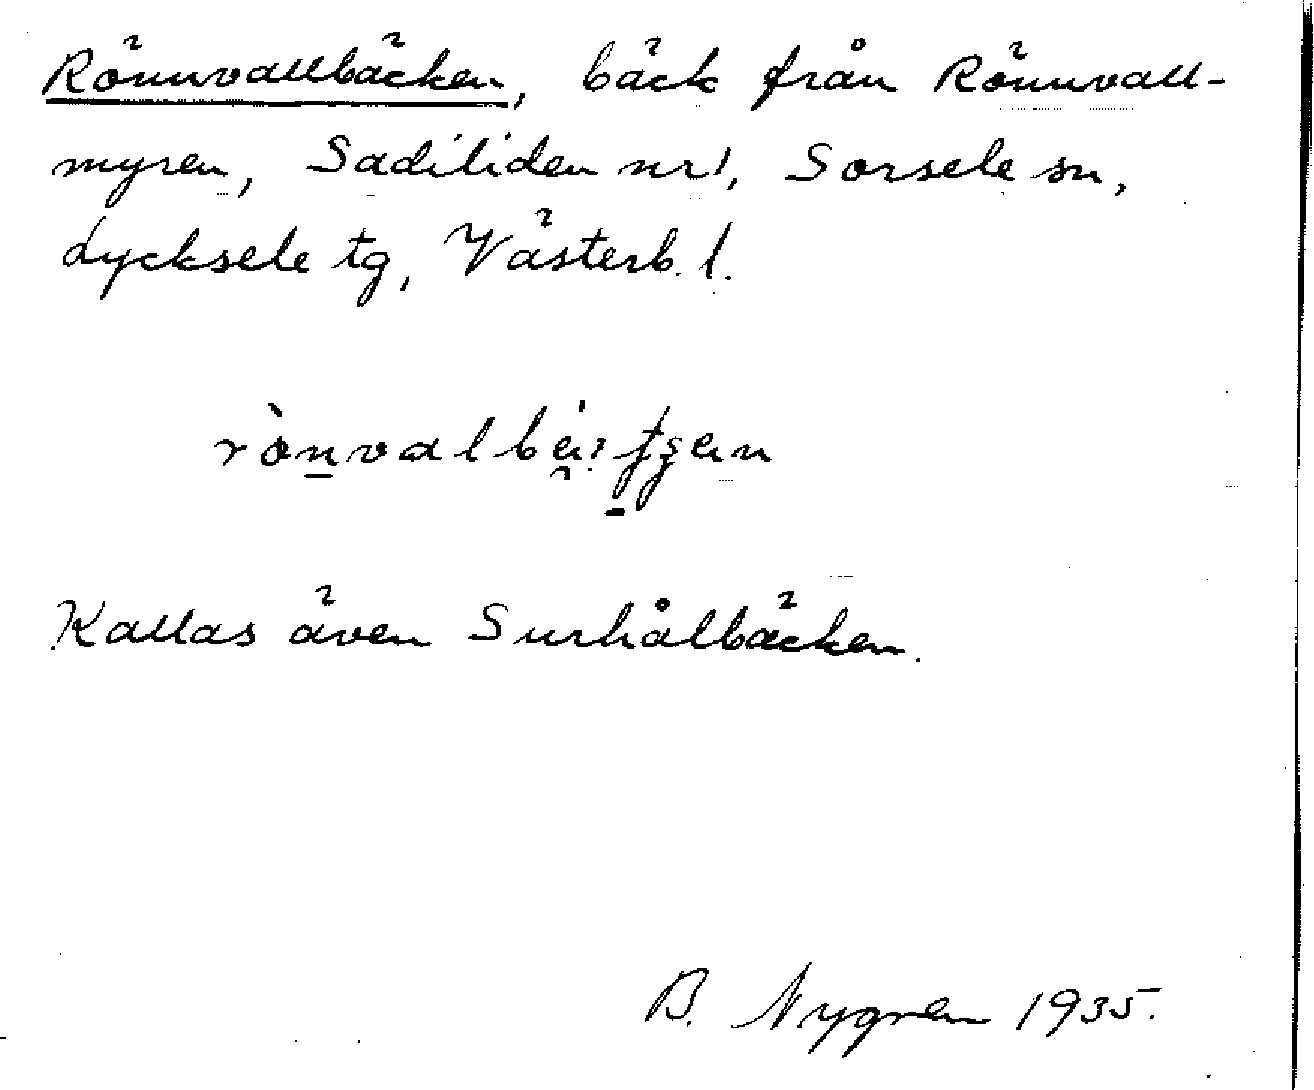 Rönnvallbäcken, bäck från Rönnvall-
myren, Sadiliden nr 1, Sorsele sn,
Lycksele tg, Västerb. l.
Kallas även Surhålbäcken.
B. Nygren 1935.